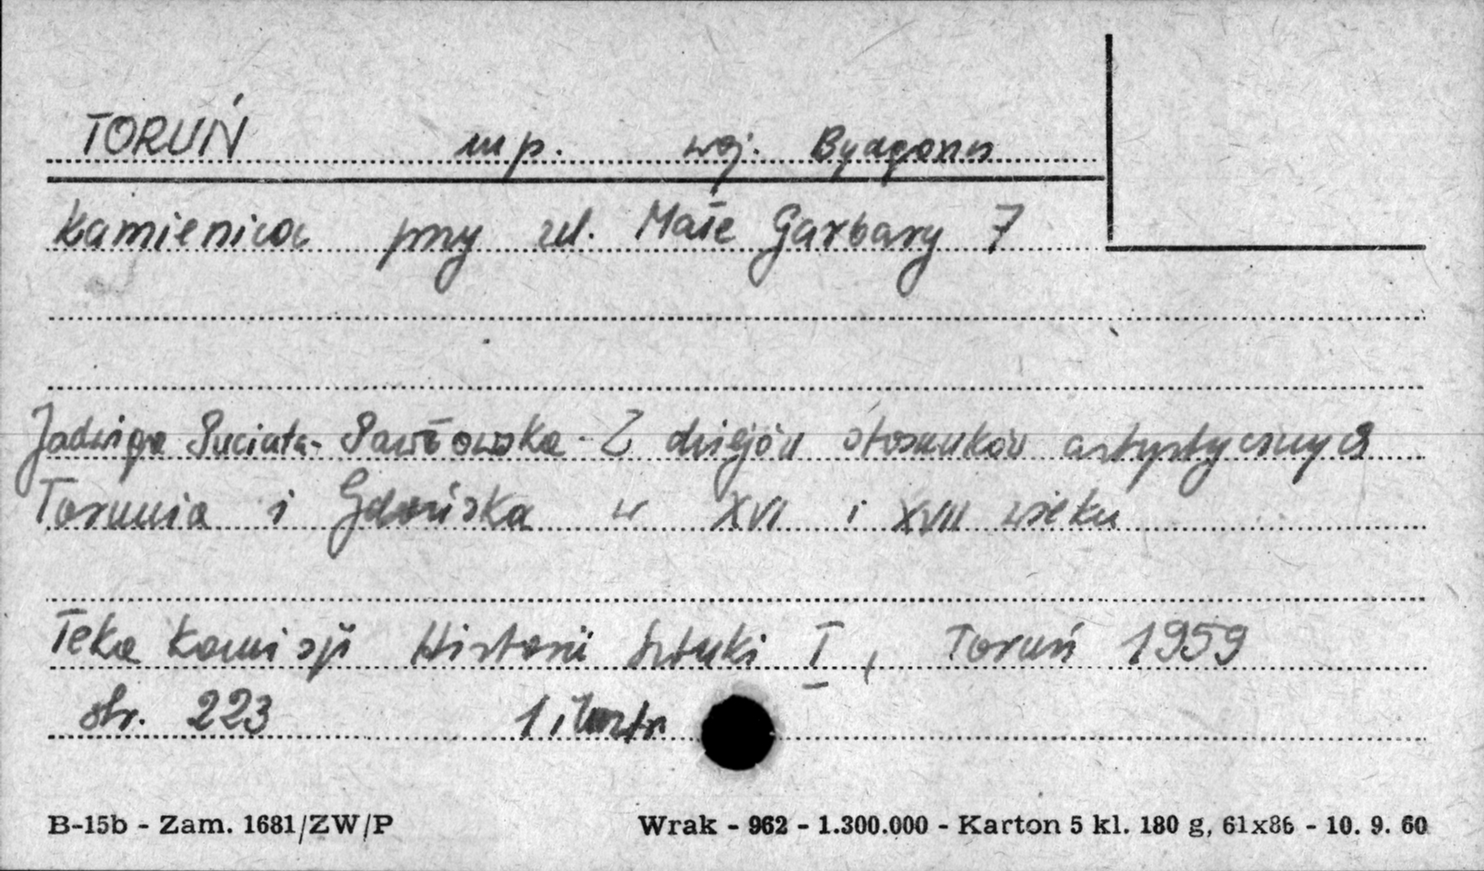 TORUŃ m p. woj. Bydgoszcz
Kamienica przy ul. Małe Garbary 7
Jadwiga Puciata-Pawłowska - Z dziejów stosunków artystycznych
Torunia i Gdańska w XVI i XVII wieku
Teka Komisji Historii Sztuki I, Toruń 1959
str. 223 1 ilustr.
B-15b - Zam. 1681/ZW/P Wrak - 962 - 1.300.000 - Karton 5 kl. 180 g, 61x86 - 10. 9. 60